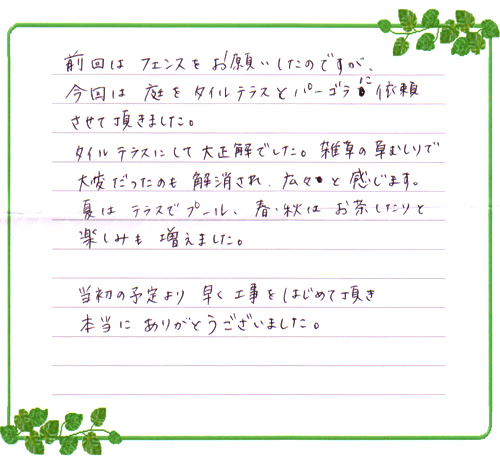 前回は フェンスを お願いしたのですが、
今回は 庭を タイルテラスと パーゴラに 依頼
させて頂きました。
タイルテラスにして 大正解でした。雑草の草むしりで
大変だったのも 解消され、広々と 感じます。
夏は テラスで プール、春・秋は お茶したりと
楽しみも 増えました。
当初の予定より 早く工事をはじめて頂き
本当に ありがとうございました。